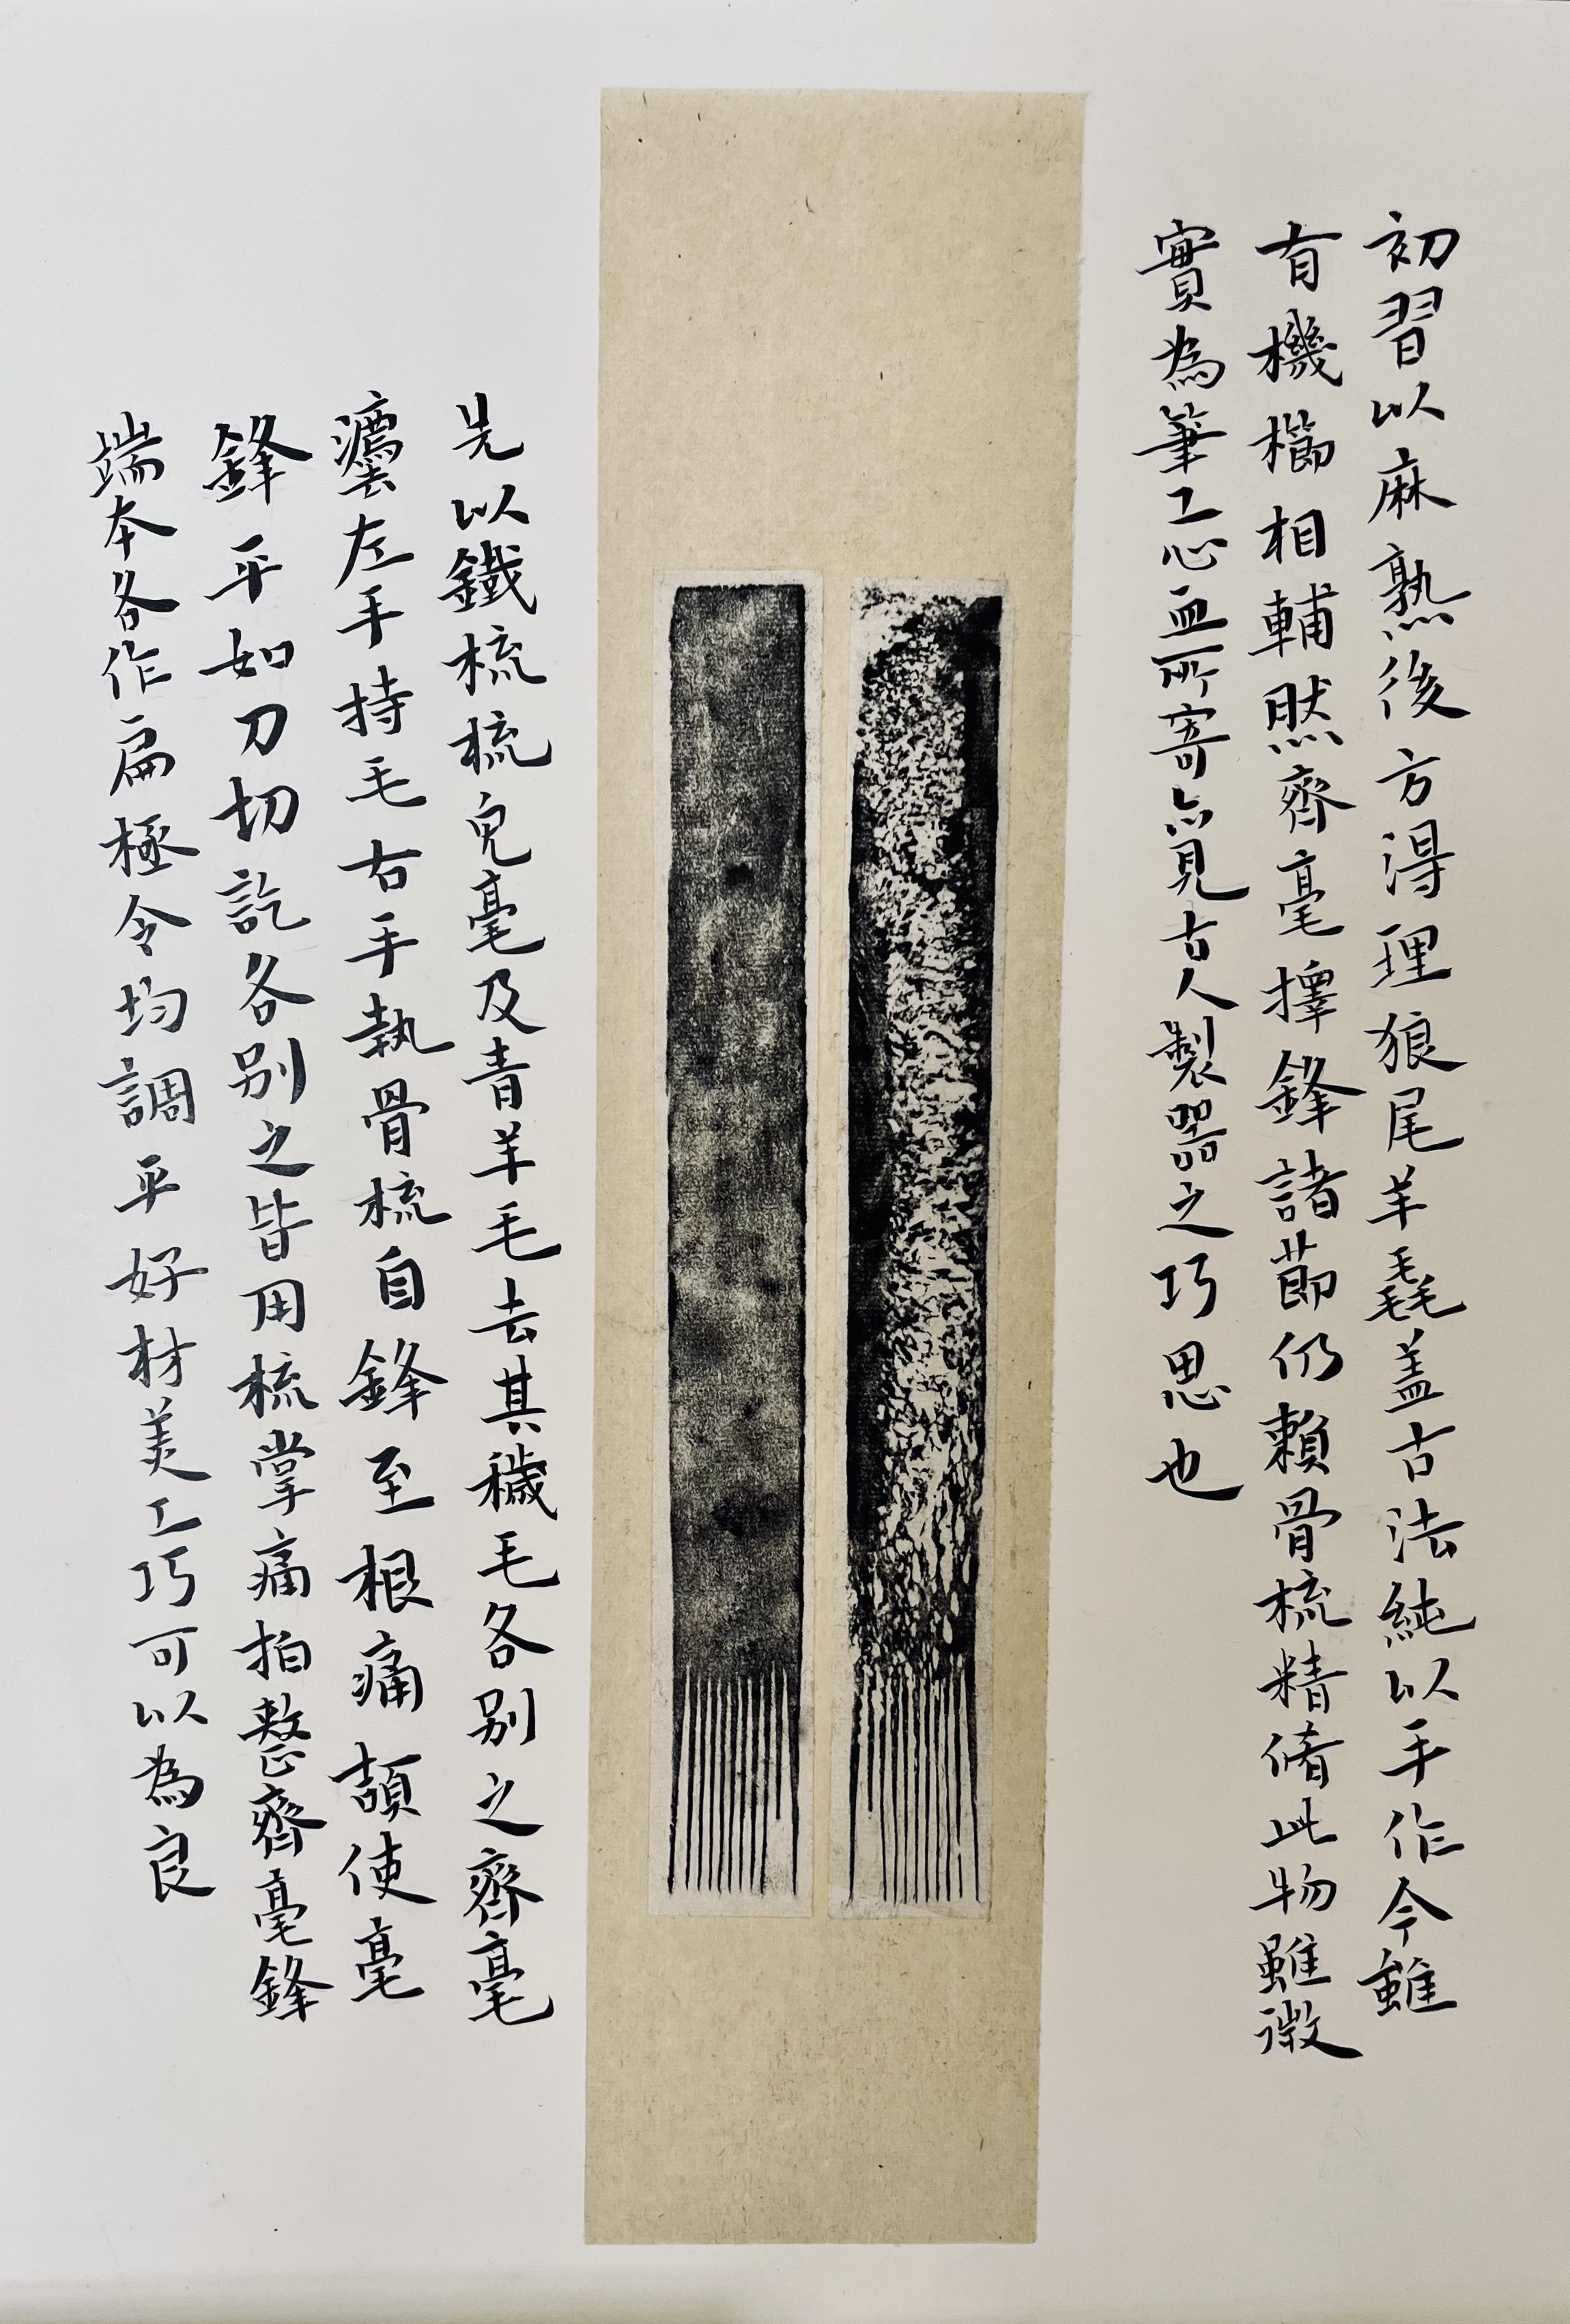 初習以麻熟後方得理狼尾羊毳盖古法純以手作今雖
有機櫛相輔然齊毫擇鋒諸莭仍賴骨梳精脩此物雖微
實為筆工心血所寄亦見古人製器之巧思也
先以鐵梳梳兔毫及青羊毛去其穢毛各別之齊毫
灋云左手持毛右手執骨梳自鋒至根痛頡使毫
鋒平如刀切訖各別之皆用梳掌痛拍整齊毫鋒
端本各作扁極令均調平好材美工巧可以為良